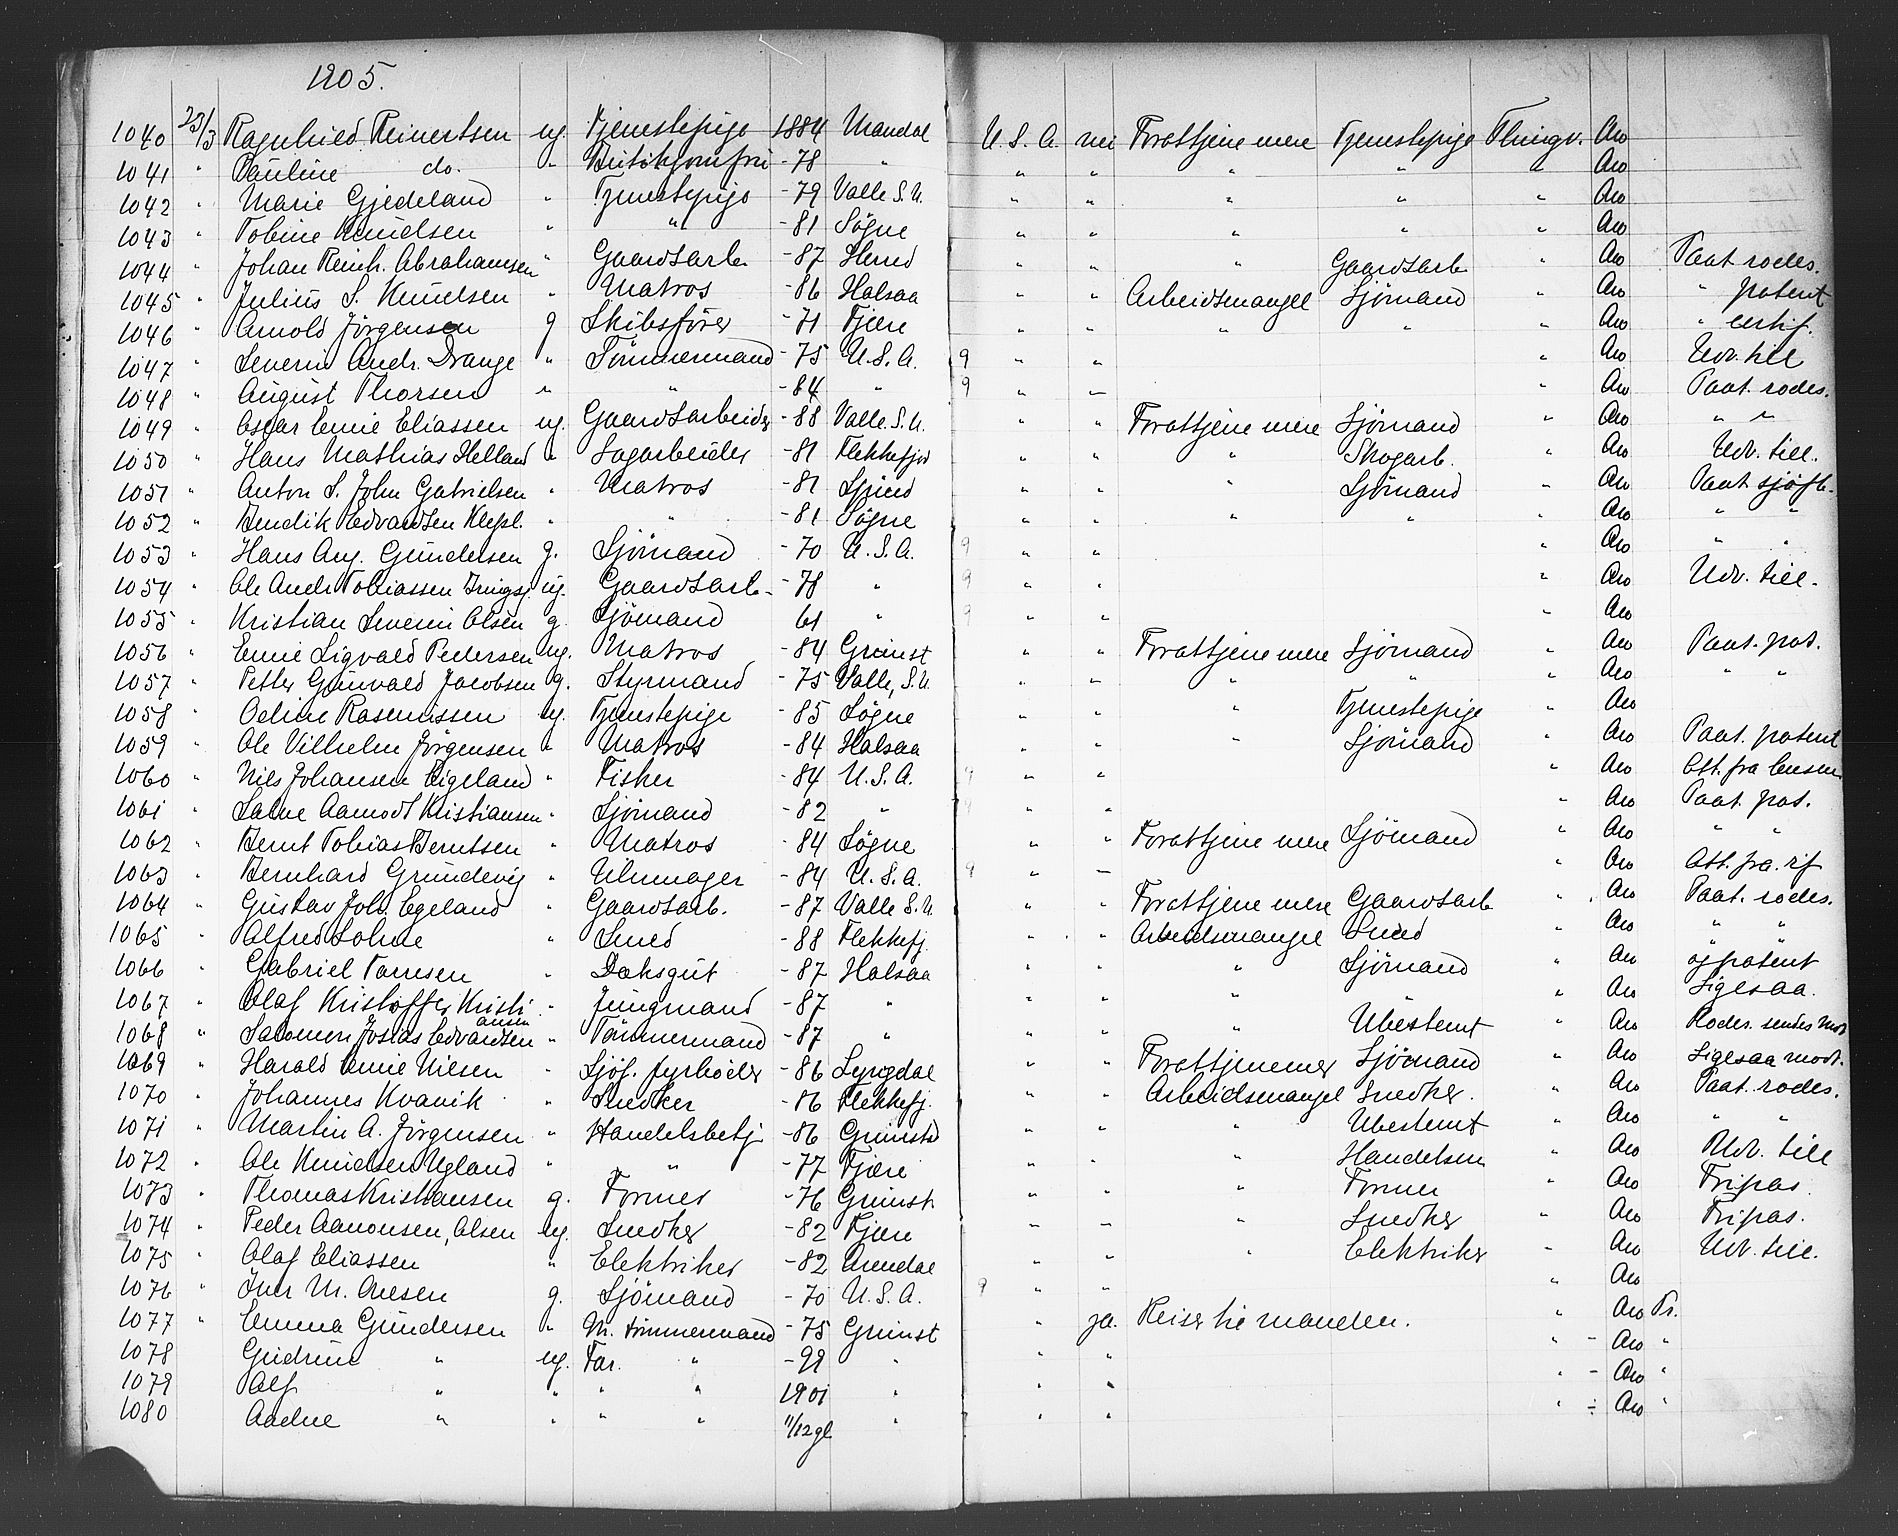 1905.
1040 23/3 Ragnhild Reinertsen ug. Tjenestepige 1884 Mandal U.S.A. nei Forattjene mere Tjenestepige Thingv. Aro
1041 " Pauline do. " Butikjomfru -78 " " " " " " Aro
1042 " Marie Gjedeland " Tjenestepige -79 Valle S.U. " " " " " Aro
1043 " Tobine Knudsen " " -81 Søgne " " " " " Aro
1044 " Johan Reinh. Abrahamsen " Gaardsarb. -87 Herred " " " Gaardsarb " Aro Paat. rodes.
1045 " Julius S. Knudsen " Matros -86 Halsaa " " Arbeidsmangel Sjömand " Aro " patent
1046 " Arnold Jörgensen g Skibsförer -71 Fjære " " " " " Aro " certif.
1047 " Severin Andr. Drange " Tömmermand -75 U.S.A. 9 " " " Aro Udv. till
1048 " August Thorsen " " -84 " 9 " " " Aro Paat. rodes.
1049 " Oscar Emil Eliassen ug. Gaardsarbeider -88 Valle S.U. " " Forattjene mere Sjömand " Aro " "
1050 " Hans Mathias Helland " Sagarbeider -81 Flekkefjord " " " Skogarb. " Aro Udv. till.
1051 " Anton S. John Gabrielsen " Matros -81 Spind " " " Sjömand " Aro Paat sjöfb.
1052 " Bendik Edvardsen Klepl. " " -81 Søgne " " " " " Aro " "
1053 " Hans Aug. Gundersen g. Sjömand -70 U.S.A. 9 " " " Aro " "
1054 " Ole Andr. Tobiassen ug. Gaardsarb. -78 " 9 " " " Aro Udv. till.
1055 " Kristian Severin Olsen g. Sjömand 61 " 9 " " " Aro
1056 " Emil Sigvald Pedersen ug. Matros -84 Grimst " " Forattjene mere Sjömand " Aro Paat. pat.
1057 " Petter Gunvald Jacobsen g. Styrmand -75 Valle, S.U. " " " " " Aro " "
1058 " Oeline Rasmussen ug. Tjenestepige -85 Søgne " " " Tjenestepige " Aro
1059 " Ole Vilhelm Jörgensen " Matros -84 Halsaa " " " Sjömand " Aro Paat. patent
1060 " Nils Johansen Eigeland " Fisker -84 U.S.A. 9 " " " Aro Att. fra
1061 " Salve Aamodt Kristiansen " Sjömand -82 " 9 " " " Aro Paat. pat.
1062 " Bernt Tobias Berntsen " Matros -84 Søgne " " Forattjene mere Sjömand " Aro " "
1063 " Bernhard Grundevig " Uhrmager -84 U.S.A. 9 " " " Aro Att. fra
1064 " Gustav Joh. Egeland " Gaardsarb. -87 Valle S.U. " " Forattjene mere Gaardsarb " Aro Paat. rodes.
1065 " Alfred Lohne " Smed -88 Flekkefj. " " Arbeidsmangel Smed " Aro " "
1066 " Gabriel Tarresen " Daksgut -87 Halsaa " " " Sjömand " Aro og patent
1067 " Olaf Kristoffer Kristiansen " Jungmand -87 " " " " " " Aro Ligesaa.
1068 " Salomon Josias Edvardsen " Tömmermand -87 " " " " Ubestemt " Aro Rodes. sendes
1069 " Harald Emil Nilsen " Sjöf. fyrböder -86 Lyngdal " " Forattjenemer Sjömand " Aro Ligesaa mod.
1070 " Johannes Kvavik " Snedker -86 Flekkefj. " " Arbeidsmangel Snedker. " Aro Paat. rodes.
1071 " Martin A. Jörgensen " Handelsbetj -86 Grimstd " " " Ubestemt " Aro " "
1072 " Ole Knudsen Ugland " " -77 Fjære " " " Handelsm " Aro Udv. till
1073 " Thomas Kristiansen g. Former -76 Grimst. " " " Former " Aro Fripas.
1074 " Peder Aanonsen, Olsen ug. Snedker -82 Fjære " " " Snedker " Aro Fripas.
1075 " Olaf Eliassen " Elektriker -82 Arendal " " " Elektriker " Aro Udv. till.
1076 " Iver M. Olesen g. Sjömand -70 U.S.A. 9 " " " Aro
1077 " Emma Gundersen " M. tömmermand -75 Grimst " ja. Reiser til manden. " Aro Fr.
1078 " Gudrun " ug. Far. " -99 " " " " - Aro "
1079 Alf " " " " 1901 " " " " - Aro "
1080 Aadne " " " " 11/12 gl " " " " ÷ Aro "